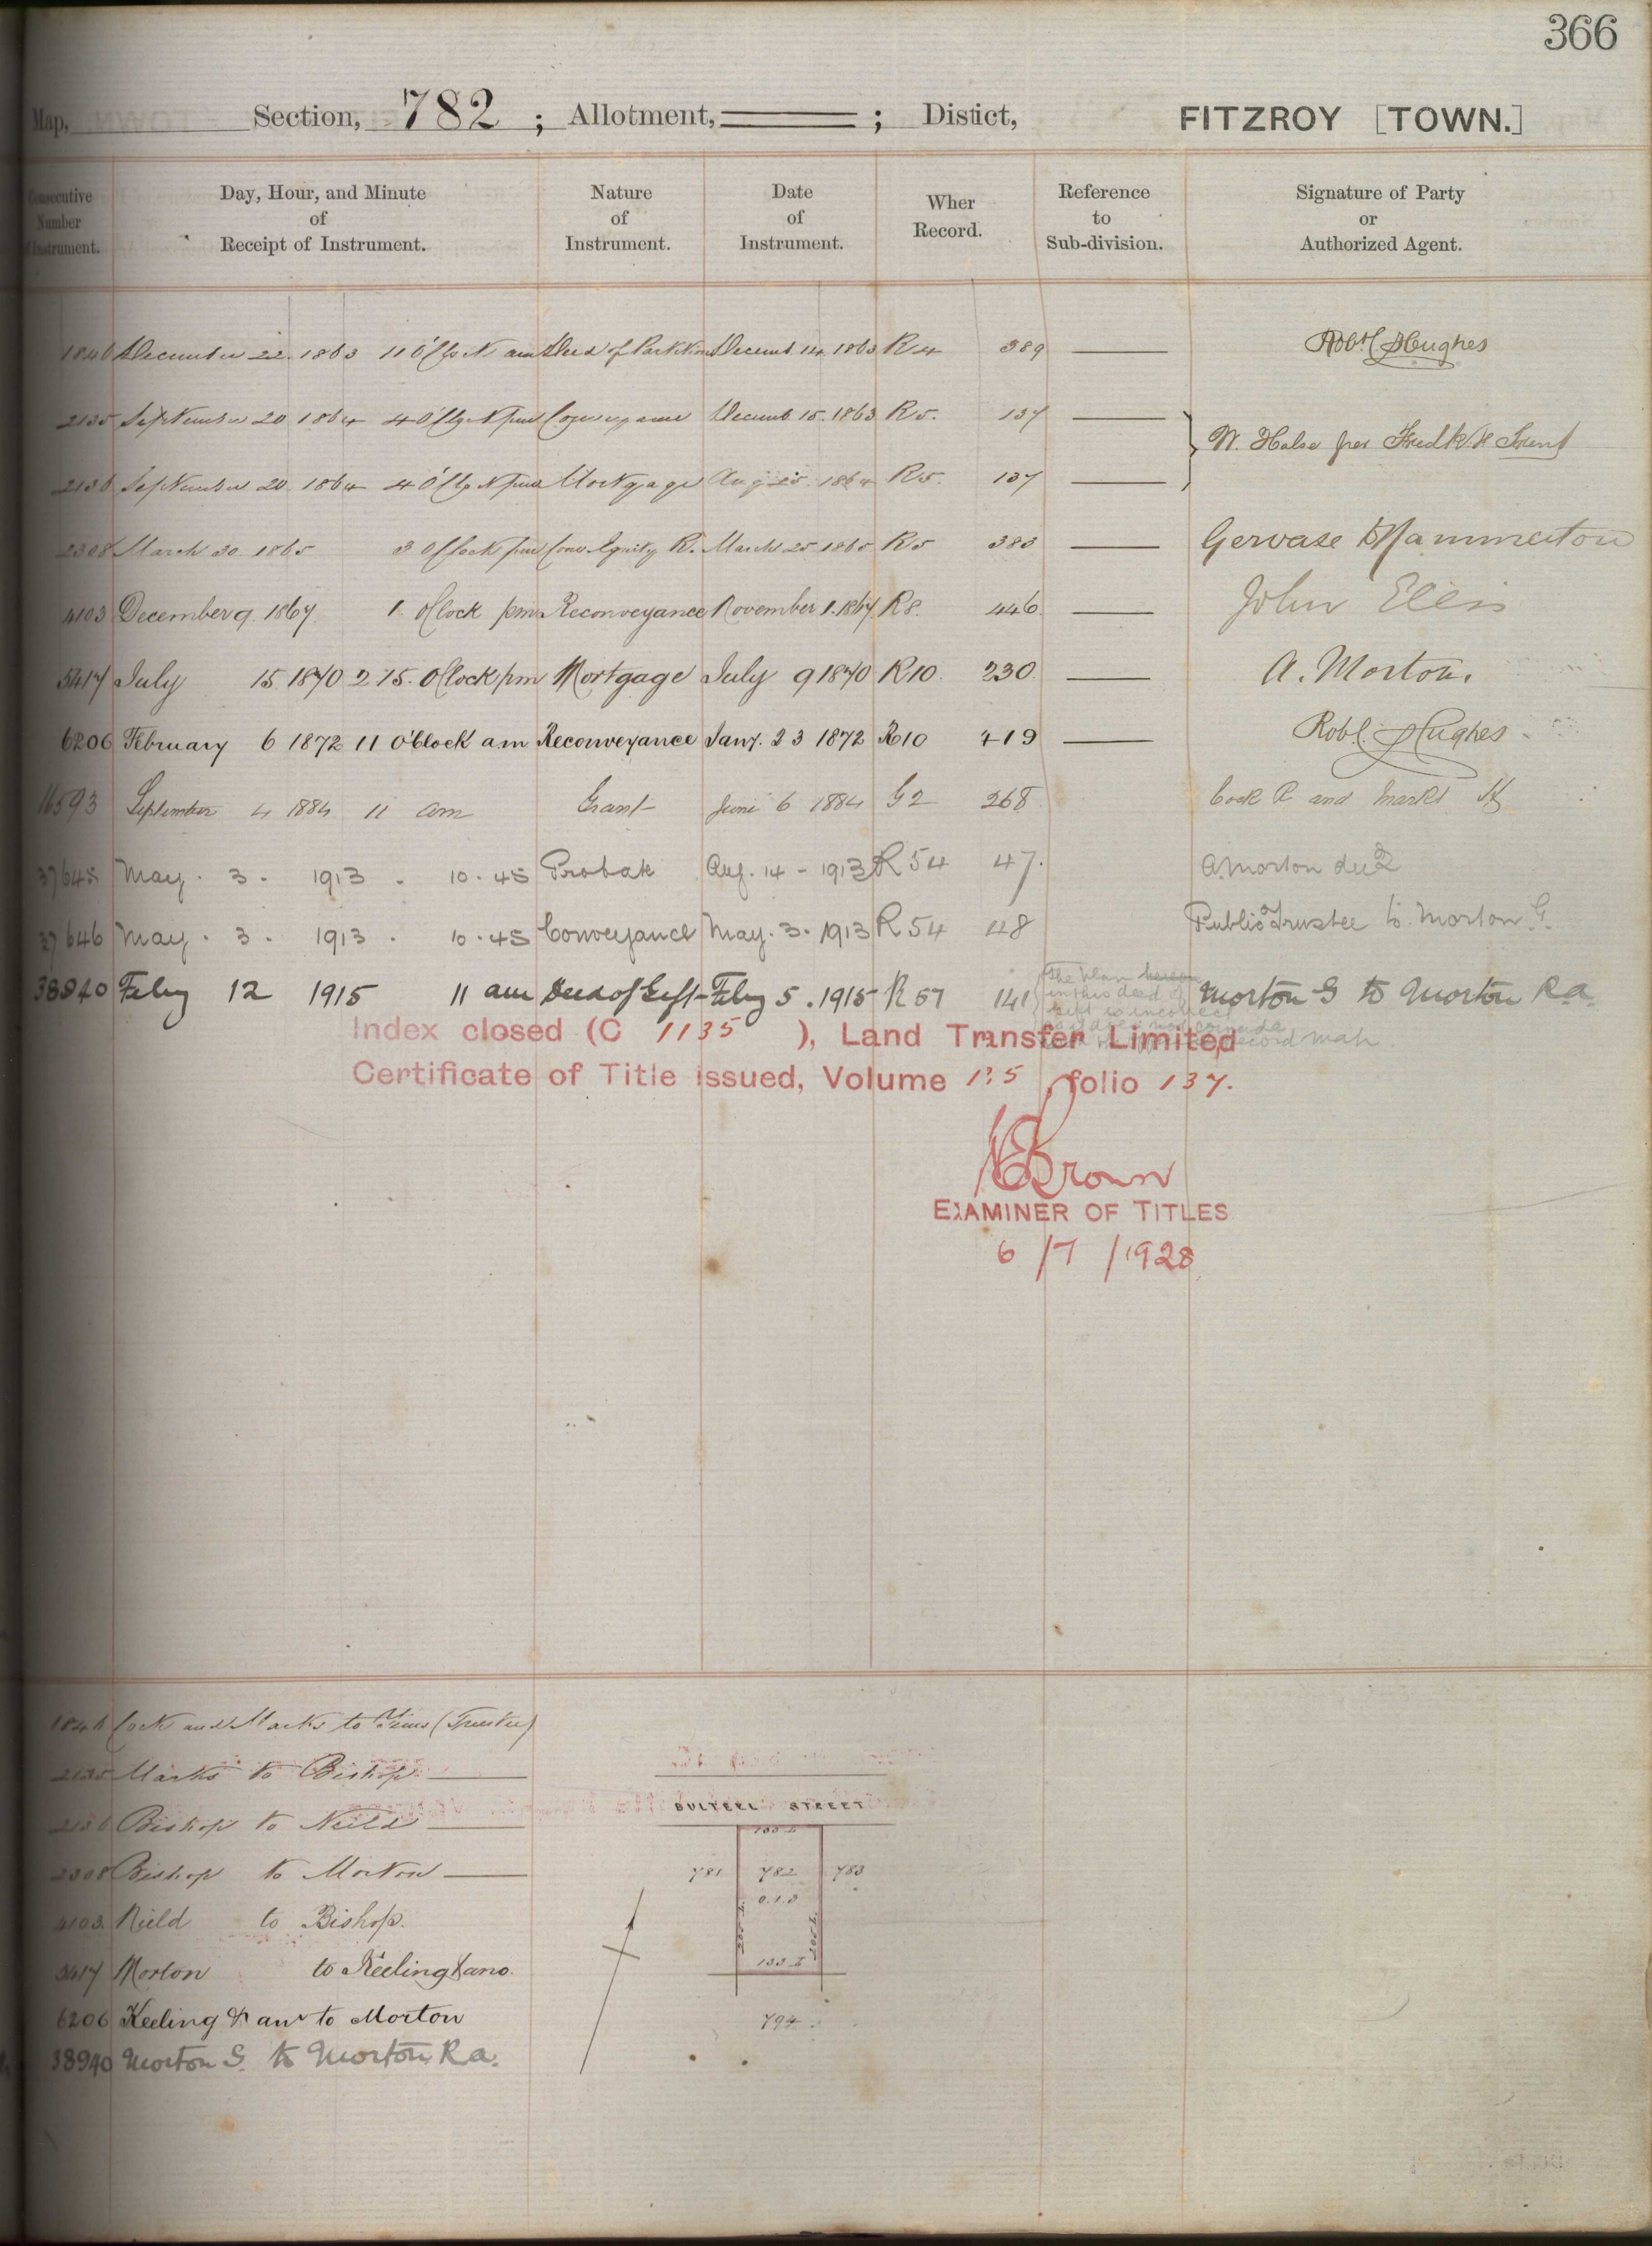 366
Map, Section, 782 ; Allotment, ——— ; Distict, FITZROY [TOWN.]
Consecutive Number of Instrument. Day, Hour, and Minute of Receipt of Instrument. Nature of Instrument. Date of Instrument. Wher Record. Reference to Sub-division. Signature of Party or Authorized Agent.
1846 December 22. 1863 11 O'Clock am Deed of Partition Decemb 14. 1863 R4 389 Robt Hughes
2135 September 20 1864 4 O'Clock pm Conveyance Decemb. 15. 1863 R5. 137
W. Halse for Fredk. H
2136 September 20 1864 4 O'Clock pm Mortgage Aug 25. 1864 R5. 137
2308 March 30. 1865 3 O'Clock pm Conv. Equity R. March 25. 1865 R5 383 Gervase Hammerton
4103 December 9. 1867 1. O'Clock pm Reconveyance November 1. 1867. R8. 446. John Ellis
5417 July 15. 1870 2 15. O'Clock pm Mortgage July 9 1870 R10. 230 A. Morton.
6206 February 6 1872 11 O'Clock am Reconveyance Jany. 23 1872 R10 419 Robt. Hughes
11593 September 4 1884 11 am Grant June 6 1884 G2 268 Cock R and Marks H
37645 May. 3. 1913. 10.45 Probate Aug. 14 - 1913 R54 47. A. Morton decd
37646 May. 3. 1913. 10.45 Conveyance May. 3. 1913 R54 48 Public Trustee to Morton G.
38940 Feby 12 1915 11 am Deed of Gift Feby 5. 1915 R57 141 Morton G to Morton R.a.
The plan hereon
in this deed of
Gift is incorrect
does not coincide
record map.
Index closed (C 1135 ), Land Transfer Limited
Certificate of Title issued, Volume 135 folio 137.
Brown
EXAMINER OF TITLES
6/7/1928
1846 Cock and Marks to (Trustee)
2135 Marks to Bishop
2136 Bishop to Nield
2308 Bishop to Morton
4103. Nield to Bishop.
5417 Morton to Keeling & ano.
6206 Keeling & anr to Morton
38940 Morton G. to Morton R.a.
BULTEEL STREET
133 L
781 782 783
0.1.3
205 L. 205 L.
133 L
794